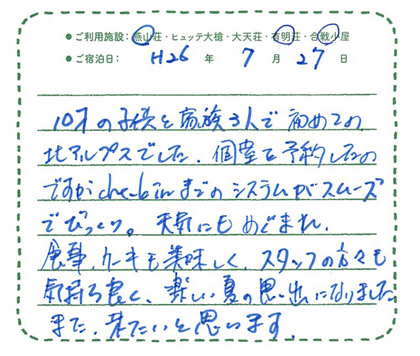 ● ご利用施設：燕山荘・ヒュッテ大槍・大天荘・有明荘・合戦小屋
● ご宿泊日： H26 年 7 月 27 日
10才の子供と家族3人で初めての
北アルプスでした。個室を予約したの
ですがcheck inまでのシステムがスムーズ
でびっくり。天気にもめぐまれ、
食事、ケーキも美味しく、スタッフの方々も
気持ち良く、楽しい夏の思い出になりました
また、来たいと思います。